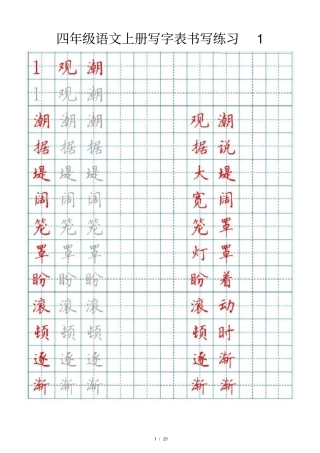 四年级语文上册写字表书写练习 1
1 观 潮
1 观 潮
潮 潮 潮 观 潮
据 据 据 据 说
堤 堤 堤 大 堤
阔 阔 阔 宽 阔
笼 笼 笼 笼 罩
罩 罩 罩 灯 罩
盼 盼 盼 盼 着
滚 滚 滚 滚 动
顿 顿 顿 顿 时
逐 逐 逐 逐 渐
渐 渐 渐 渐 渐
1 / 21